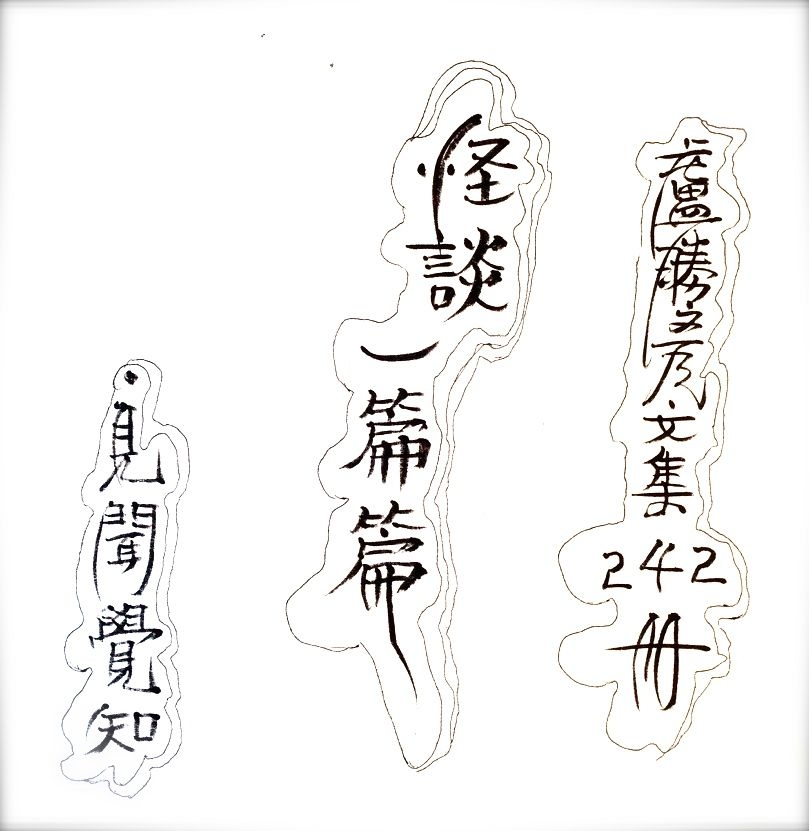 盧勝彥文集
242
冊
怪談一篇篇
•見聞覺知